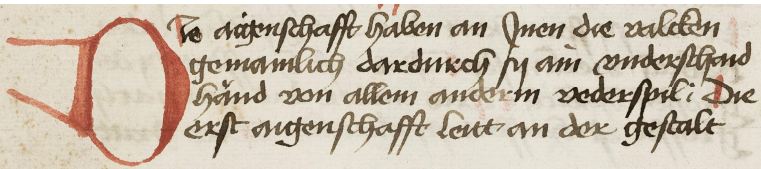 Die aigenschafft haben an Inen die valcken
gemainlich dardurch sy ain vnderschaid
händ von allem anderm vederspil: Die
erst aigenschafft leitt an der gestalt